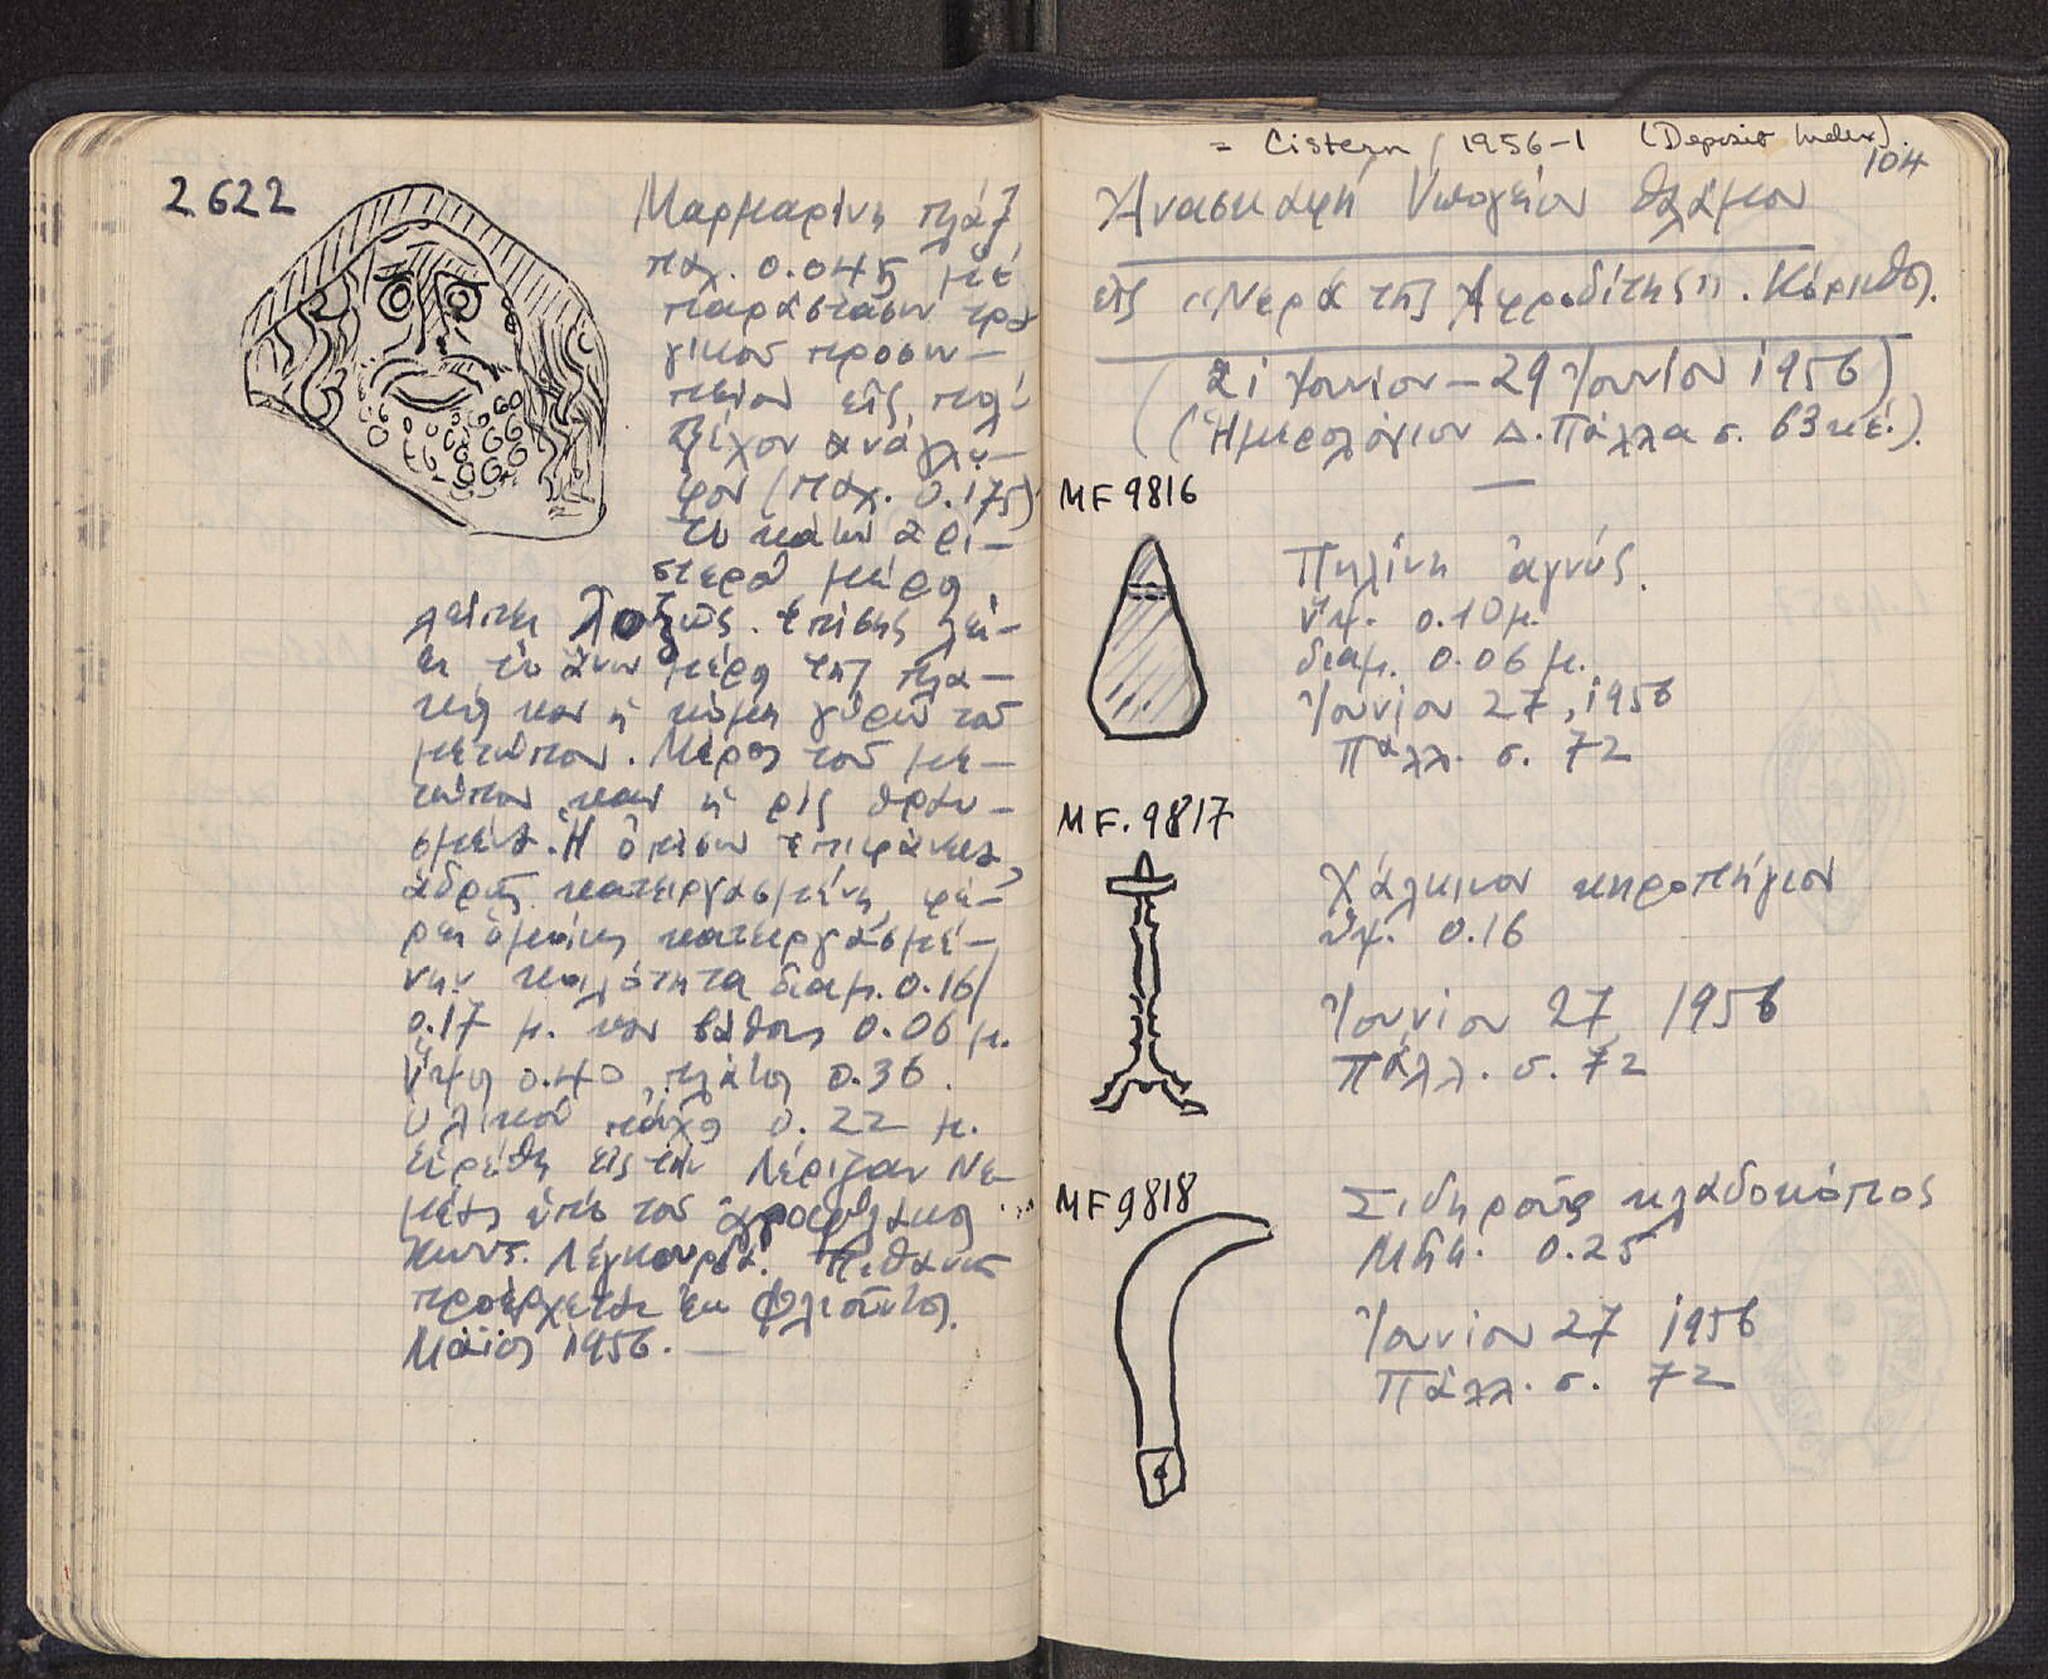 2622
Μαρμαρίνη πλάξ
παχ. 0.045 μέ
παράστασιν τρα
γικοῦ προσω-
πείου εἰς πολύ
ἔξεχον ἀνάγλυ-
φον (παχ. 0.175)
Τό κάτω ἀρι-
στερόν μέρος
λείπει λοξῶς. Ἐπίσης λεί-
πει τό ἄνω μέρος τῆς πλα-
κός και ἡ κόμη γύρω τοῦ
μετώπου. Μέρος τοῦ με-
τώπου και ἡ ρίς θραυ-
σμένα. Ἡ ὄπισω ἐπιφάνεια,
ἁδρῶς κατειργασμένη, φέ-
ρει ὁμοίως κατειργασμέ-
νην κοιλότητα διαμ. 0.16/
0.17 μ. και βάθους 0.06 μ.
Ὕψος 0.40, πλάτος 0.36.
Ὁλικόν πάχος 0.22 μ.
Εὑρέθη εἰς τήν Λέριζαν Νε-
μέας ὑπό τοῦ ἀγροφύλακος
Κωνσ. Λέγκουρδα. Πιθανῶς
προέρχεται ἐκ Φλιοῦντος.
Μάϊος 1956. —
= Cistern 1956-1 (Deposit Index).
104
Ἀνασκαφή Ὑπογείου θαλάμου
εἰς "Νερά τῆς Ἀφροδίτης". Κόρινθος.
(21 Ἰουνίου - 29 Ἰουνίου 1956)
(Ἡμερολόγιον Δ. Πάλλα σ. 63 κἑ.).
MF 9816
Πηλίνη ἀγνύς.
ὕψ. 0.10 μ.
διαμ. 0.06 μ.
Ἰουνίου 27, 1956
Πάλλ. σ. 72
MF. 9817
Χάλκινον κηροπήγιον
ὕψ. 0.16
Ἰουνίου 27, 1956
Πάλλ. σ. 72
MF 9818
Σιδηροῦς κλαδοκόπος
Μῆκ. 0.25
Ἰουνίου 27 1956
Πάλλ. σ. 72